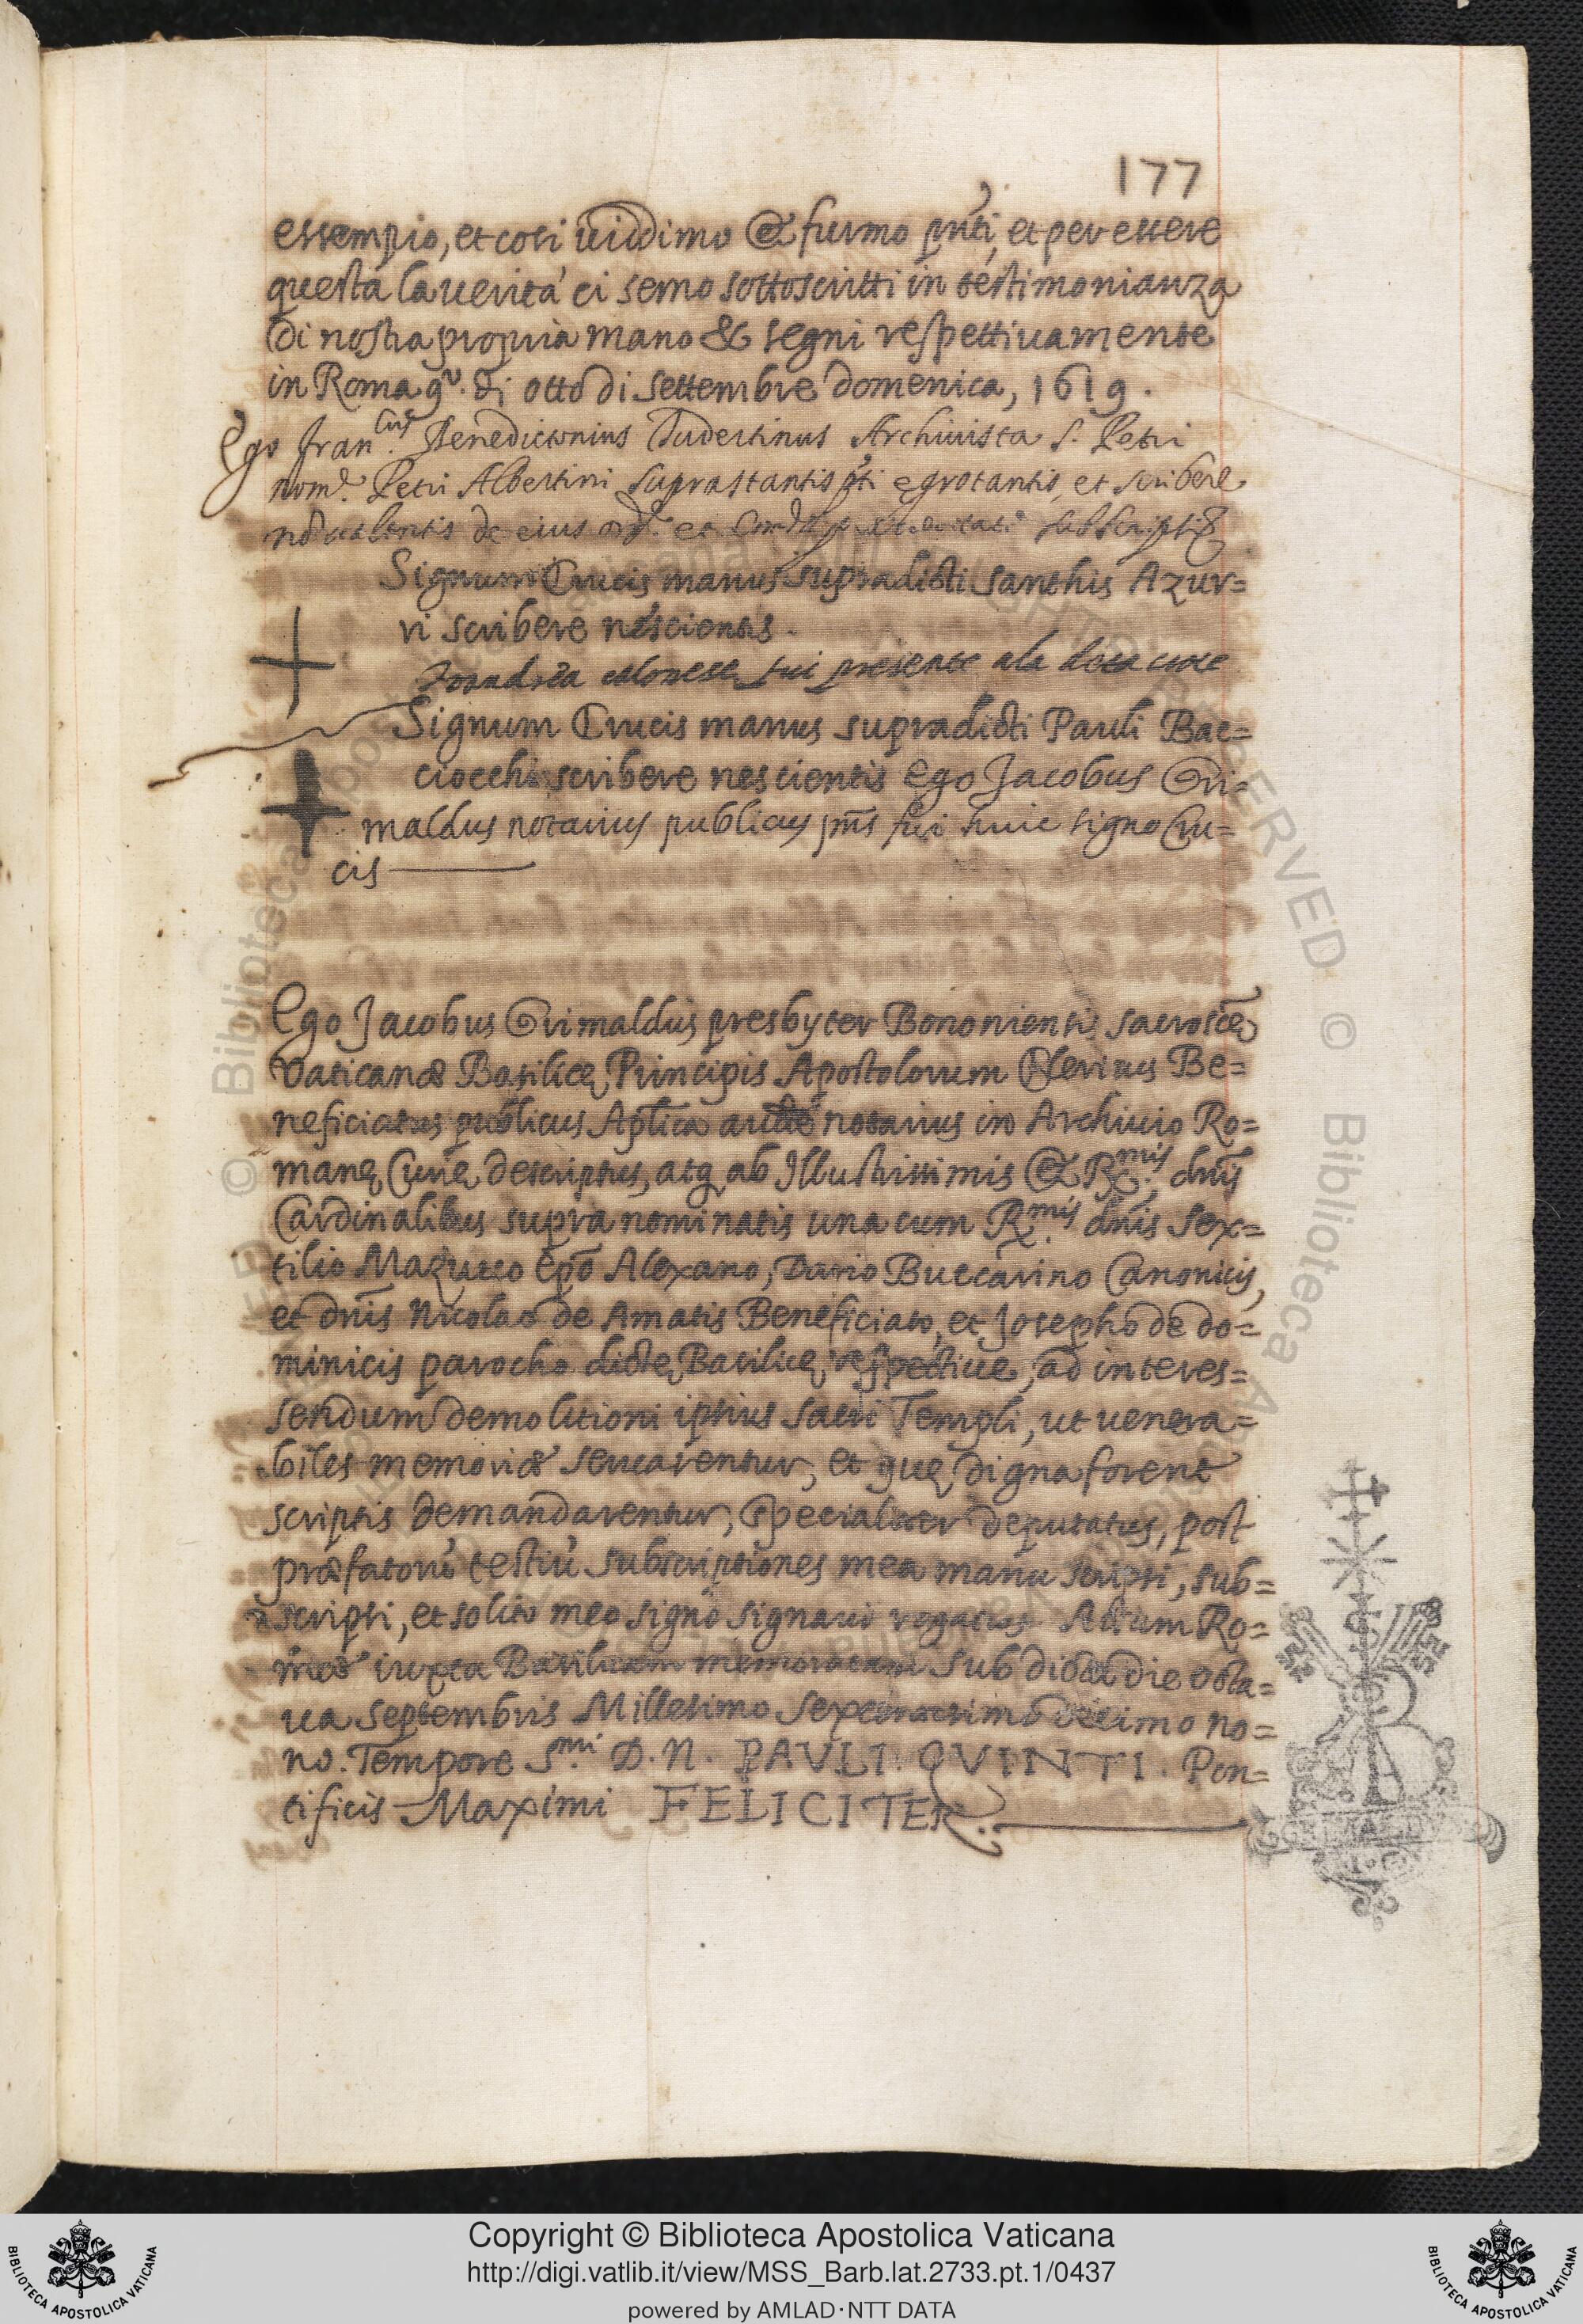 177
essempio, et cosi uiddimo & fumo pñti, et per essere
questa la uerità ci semo sottoscritti in testimonianza
di nostra propria mano & segni respettiuamente
in Roma di otto di settembre domenica, 1619.
Ego Fran.cus Benedictonius Tudertinus Archiuista S. Petri
nom.e Petri Albertini suprastantis pti egrotantis, et scribere
nõ ualentis de eius ord.e et subscripsi
Signum Crucis manus supradicti Santhis Azur=
ri scribere nescientis.
fui presente ala
Signum Crucis manus supradicti Pauli Bac=
ciocchi scribere nescientis Ego Jacobus Gri=
maldus notarius publicus pñs fui huic signo Cru=
cis
Ego Jacobus Grimaldus presbyter Bononiensis, sacrosctę
Vaticanæ Basilicę Principis Apostolorum Clericus Be=
neficiatus publicus Aplica aucte notarius in Archiuio Ro=
manę Curię descriptus, atq ab Illustrissimis & R.mis dnis
Cardinalibus supra nominatis una cum R.mis dnis Sex=
tilio Mazucco Epõ Alexano, Dario Buccarino Canonicis,
et dnis Nicolao de Amatis Beneficiato, et Josepho de do=
minicis parocho dictę Basilicę respectiue, ad interes=
sendum demolitioni ipsius sacri Templi, ut uenera=
biles memoriæ seruarentur, et quę digna forent
scriptis demandarentur, specialiter deputatus, post
præfatorũ testiũ subscriptiones mea manu scripsi, sub=
scripsi, et solito meo signo signaui rogatus Actum Ro=
mæ iuxta Basilicam memoratam sub dicta die octa=
ua septembris Millesimo sexcentesimo decimo no=
no. Tempore S.mi D. N. PAVLI. QVINTI. Pon=
tificis Maximi FELICITER.
Copyright © Biblioteca Apostolica Vaticana
http://digi.vatlib.it/view/MSS_Barb.lat.2733.pt.1/0437
powered by AMLAD·NTT DATA
BIBLIOTECA APOSTOLICA VATICANA
BIBLIOTECA APOSTOLICA VATICANA